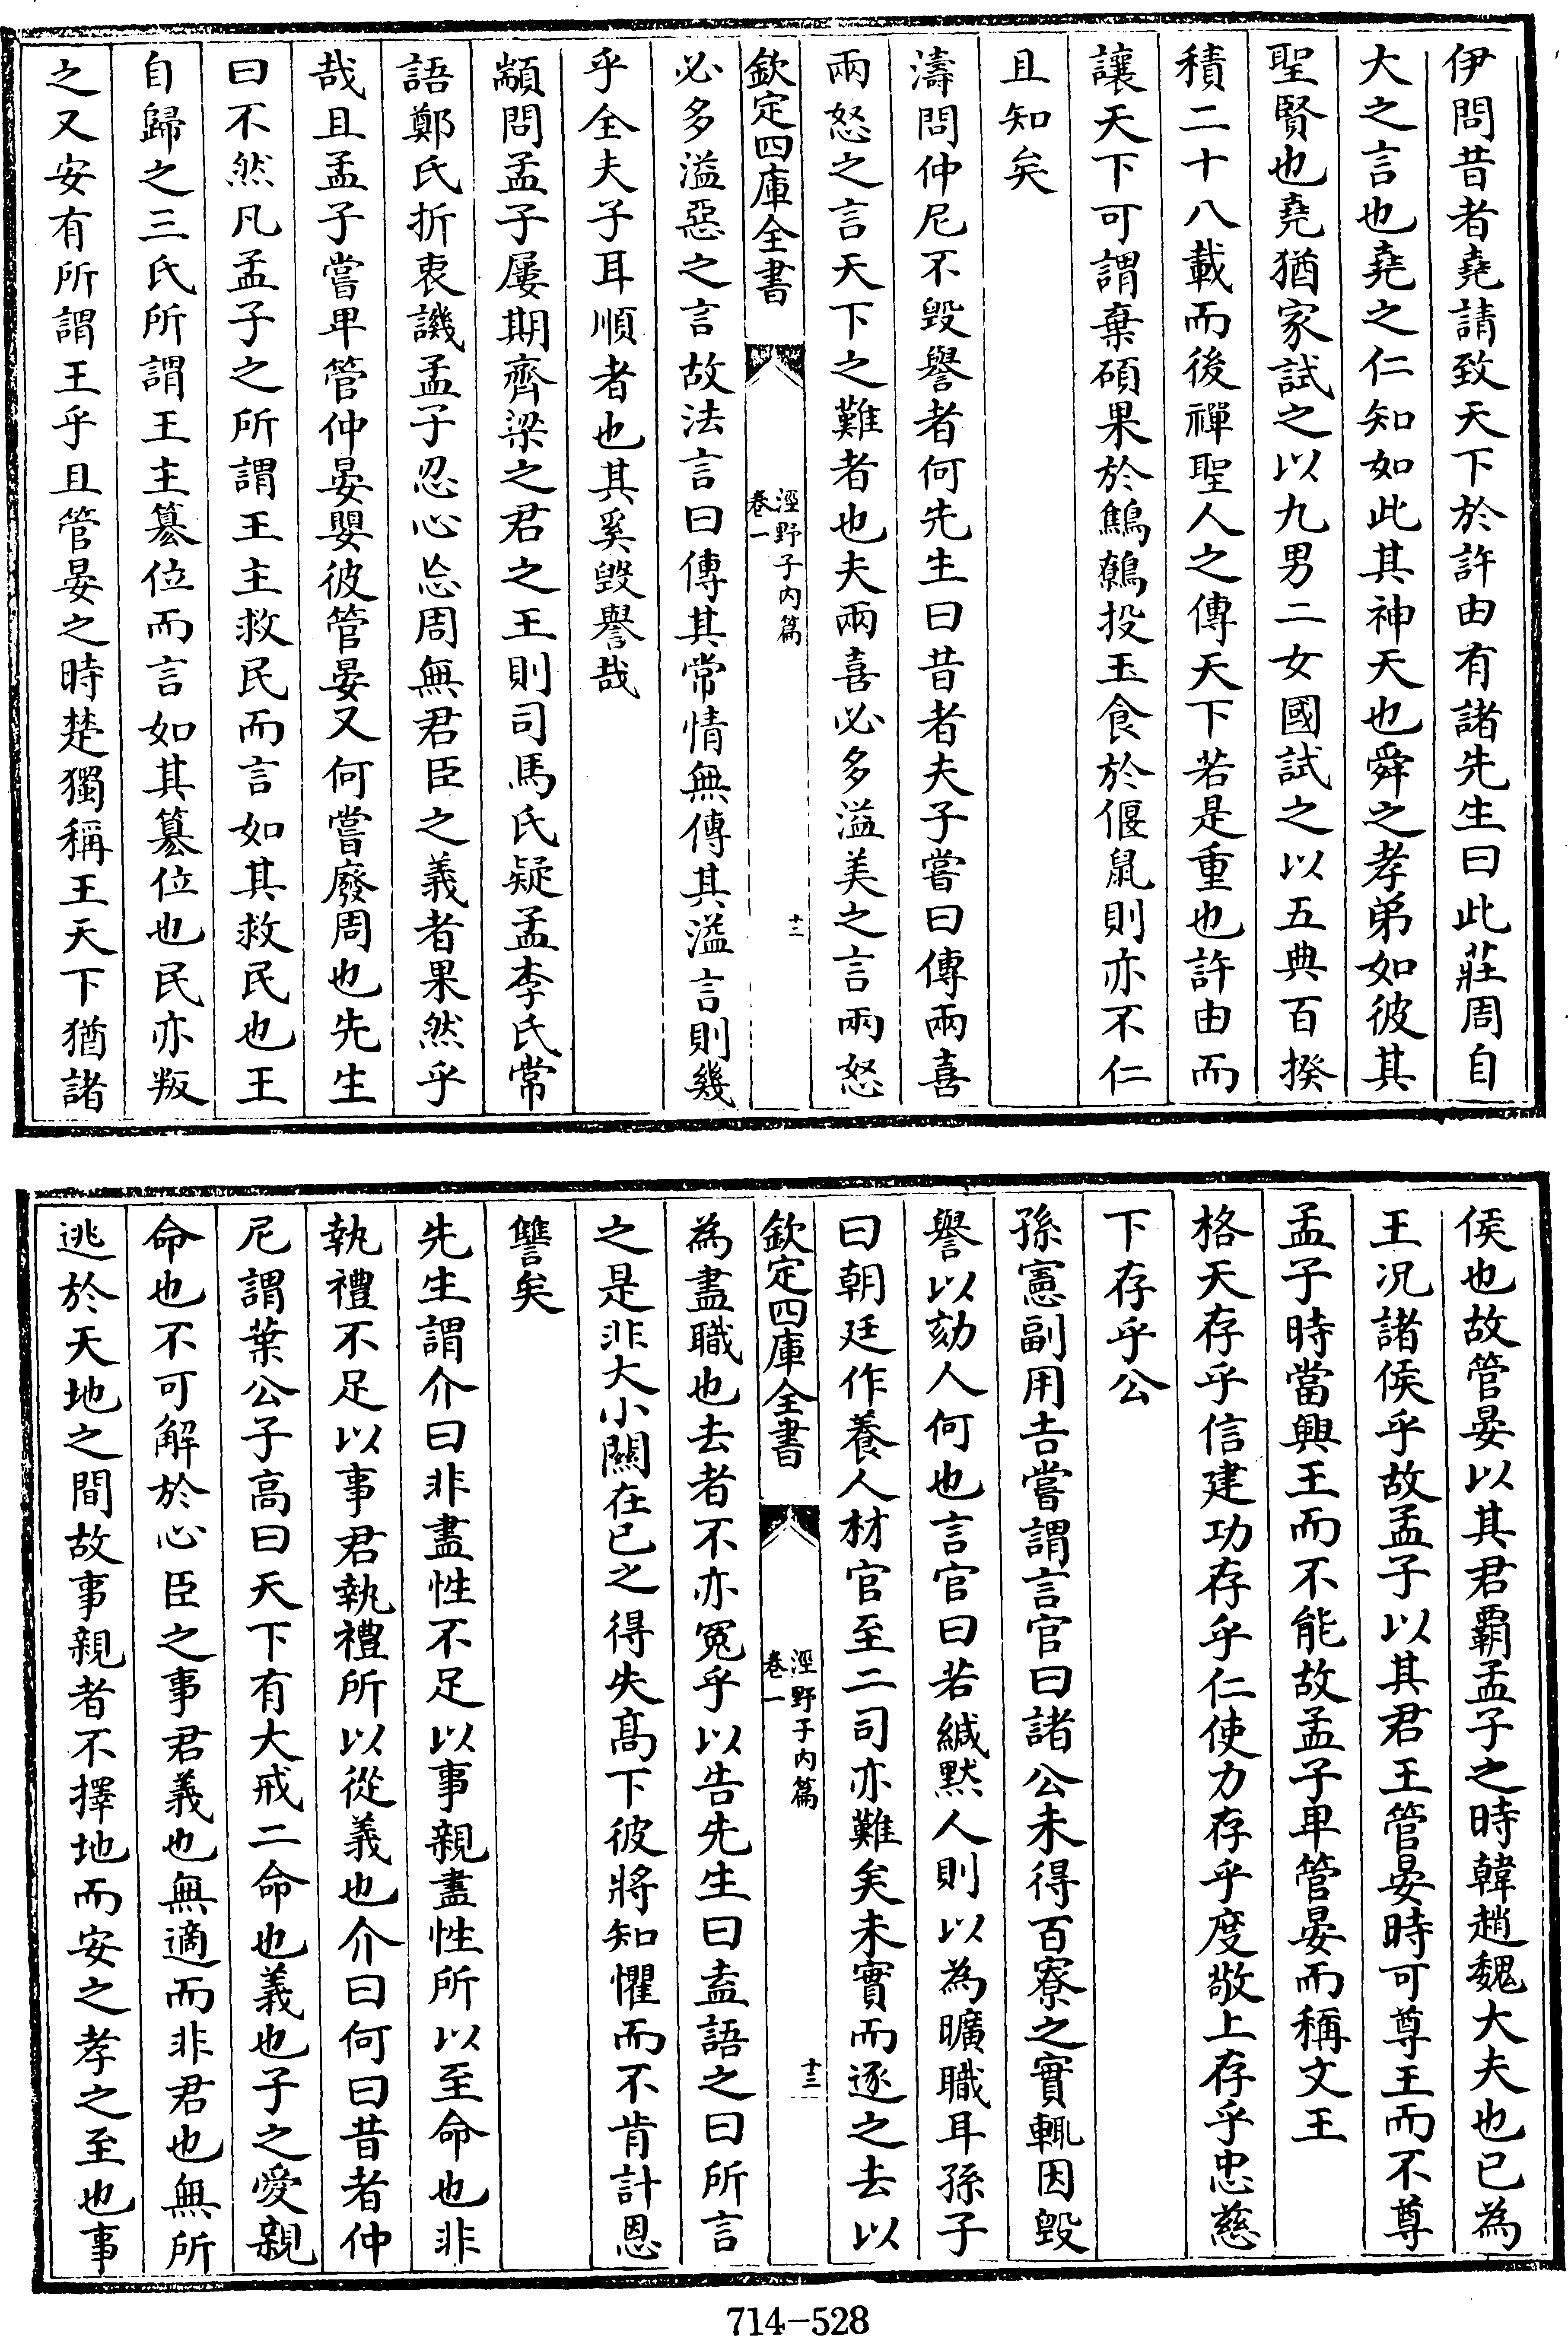 伊問昔者堯請致天下於許由有諸先生曰此莊周自
大之言也堯之仁知如此其神天也舜之孝弟如彼其
聖賢也堯猶家試之以九男二女國試之以五典百揆
積二十八載而後禪聖人之傳天下若是重也許由而
讓天下可謂棄碩果於鷦鷯投玉食於偃鼠則亦不仁
且知矣
濤問仲尼不毀譽者何先生曰昔者夫子嘗曰傳兩喜
兩怒之言天下之難者也夫兩喜必多溢美之言兩怒
欽定四庫全書
涇野子內篇
卷一
十二
必多溢惡之言故法言曰傳其常情無傳其溢言則幾
乎全夫子耳順者也其奚毀譽哉
顓問孟子屢期齊梁之君之王則司馬氏疑孟李氏常
語鄭氏折衷譏孟子忍心忘周無君臣之義者果然乎
哉且孟子嘗卑管仲晏嬰彼管晏又何嘗廢周也先生
曰不然凡孟子之所謂王主救民而言如其救民也王
自歸之三氏所謂王主簒位而言如其簒位也民亦叛
之又安有所謂王乎且管晏之時楚獨稱王天下猶諸
侯也故管晏以其君覇孟子之時韓趙魏大夫也已為
王況諸侯乎故孟子以其君王管晏時可尊王而不尊
孟子時當興王而不能故孟子卑管晏而稱文王
格天存乎信建功存乎仁使力存乎度敬上存乎忠慈
下存乎公
孫憲副用吉嘗謂言官曰諸公未得百寮之實輒因毀
譽以劾人何也言官曰若緘默人則以為曠職耳孫子
曰朝廷作養人材官至二司亦難矣未實而逐之去以
欽定四庫全書
涇野子內篇
卷一
十三
為盡職也去者不亦冤乎以告先生曰盍語之曰所言
之是非大小關在已之得失髙下彼將知懼而不肯計恩
讐矣
先生謂介曰非盡性不足以事親盡性所以至命也非
執禮不足以事君執禮所以從義也介曰何曰昔者仲
尼謂葉公子高曰天下有大戒二命也義也子之愛親
命也不可解於心臣之事君義也無適而非君也無所
逃於天地之間故事親者不擇地而安之孝之至也事
714-528